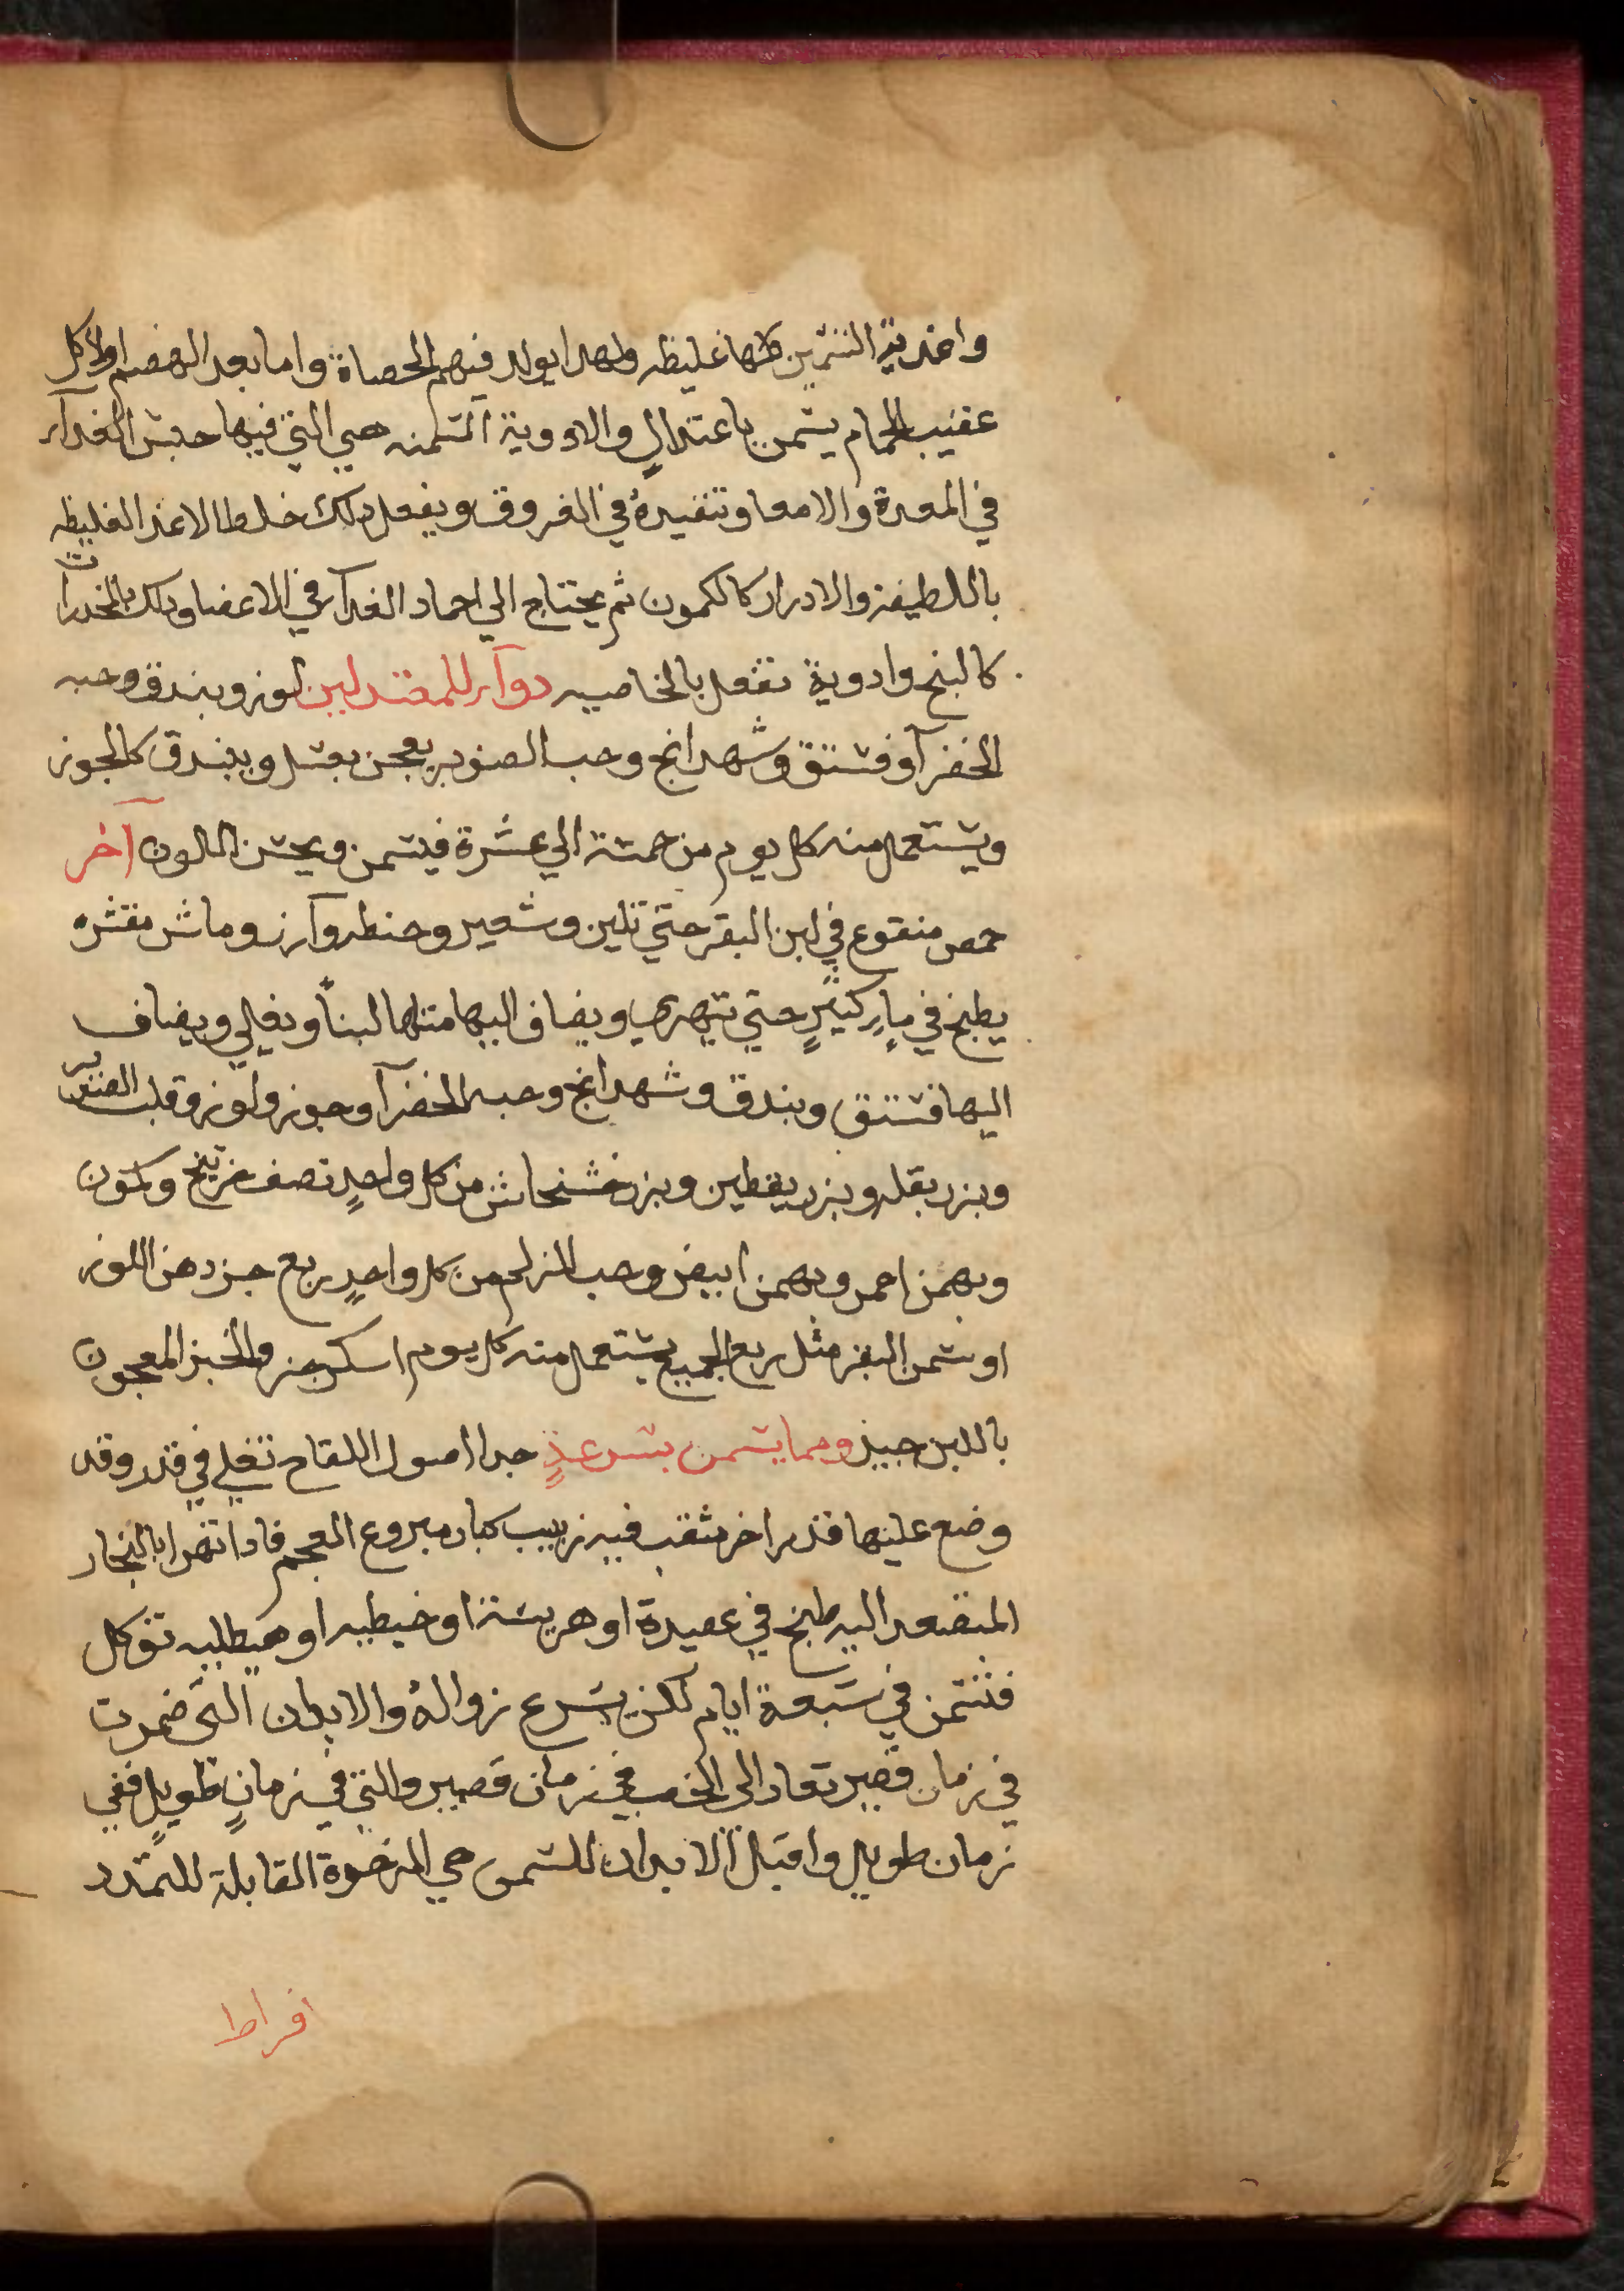 واغدية التسمين كلها غليظه ولهدا يولد فيهم الحصاة واما بعد الهضم اولاكل
عقيب الحمام يسمن باعتدالٍ والادوية المسمنه هي التي فيها حبس الغدآء
في المعدة والامعا وتنفيده في العروق ويفعل دلك خلط الاغذ الغليظه
باللطيفة والادرار كالكمون ثم يحتاج الي اجماد الغدآء في الاعضا ودلك بالمخدرات
كالبنج وادوية تفعل بالخاصيه دوآء للمعتدلين لوز وبندق وحبه
الخضرآ وفستق وشهدانج وحب الصنوبر يعجن بعسل ويبندق كالجوز
ويستعمل منه كل يوم من خمسة الي عشرة فيسمن ويحسن اللون آخر
حمص منقوع في لبن البقر حتي تلين وشعير وحنطه وآرز وماش مقشره
يطبخ في ماءٍ كثيرٍ حتي تتهري ويضاف اليها مثلها لبناً ويغلي ويضاف
اليها فستق وبندق وشهدانج وحبه الخضرآ وجوز ولوز وقلب الصنوبر
وبزر بقله وبزر يقطين وبزر خشخاش من كل واحدٍ نصف جز بنج وكمون
وبهمن احمر وبهمن ابيض وحب الزلم من كل واحدٍ ربع جز دهن اللوز
او سمن البقر مثل ربع الجميع يستعمل منه كل يوم اسكرجة والخبز المعجون
باللبن جيد ومما يسمن بسرعةٍ جدا اصول اللفاح تغلي في قدر وقد
وضع عليها قدر اخر مثقب فيه زبيب كبار منزوع العجم فادا تهرا بالبخار
المتصعد اليه طبخ في عصيدة او هريسة او خبيطيه او هيطليه توكل
فتسمن في سبعة ايام لكن يسرع زوالهُ والابدان التى ضمرت
في زمان قصير تعاد الى الخصب في زمان قصير والتي في زمانٍ طويلٍ ففي
زمان طويل واقبل الابدان للسمن هي الرخوة القابلة للتمدد
افراط